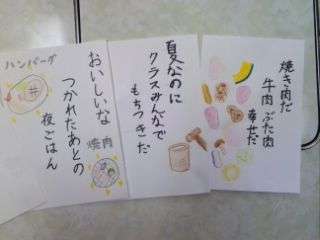 焼き肉だ
牛肉 ぶた肉
幸せだ
夏なのに
クラスみんなで
もちつきだ
おいしいな
つかれたあとの
夜ごはん
焼肉
ハンバーグ